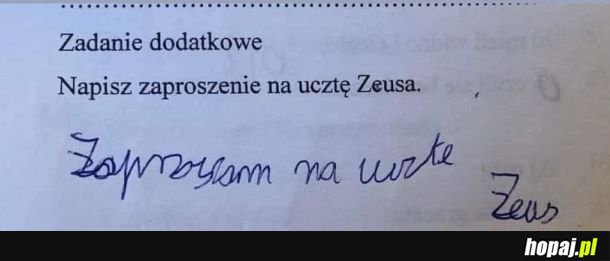 Zadanie dodatkowe
Napisz zaproszenie na ucztę Zeusa.
Zapraszam na uczte
Zeus
hopaj.pl